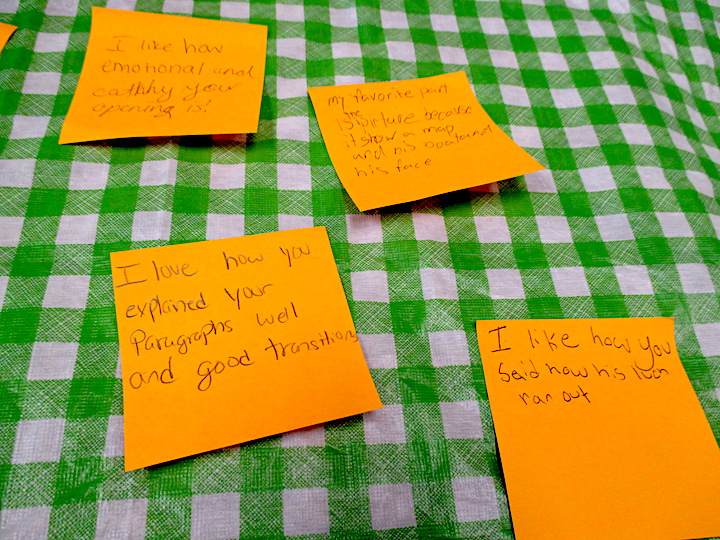 I like how
emotional and
catkhy your
opening is!
my favorite part
the
is picture because
it show a map
and his boat and
his face
I love how you
explained your
Paragraphs well
and good transitions
I like how you
Said how his luck
ran out